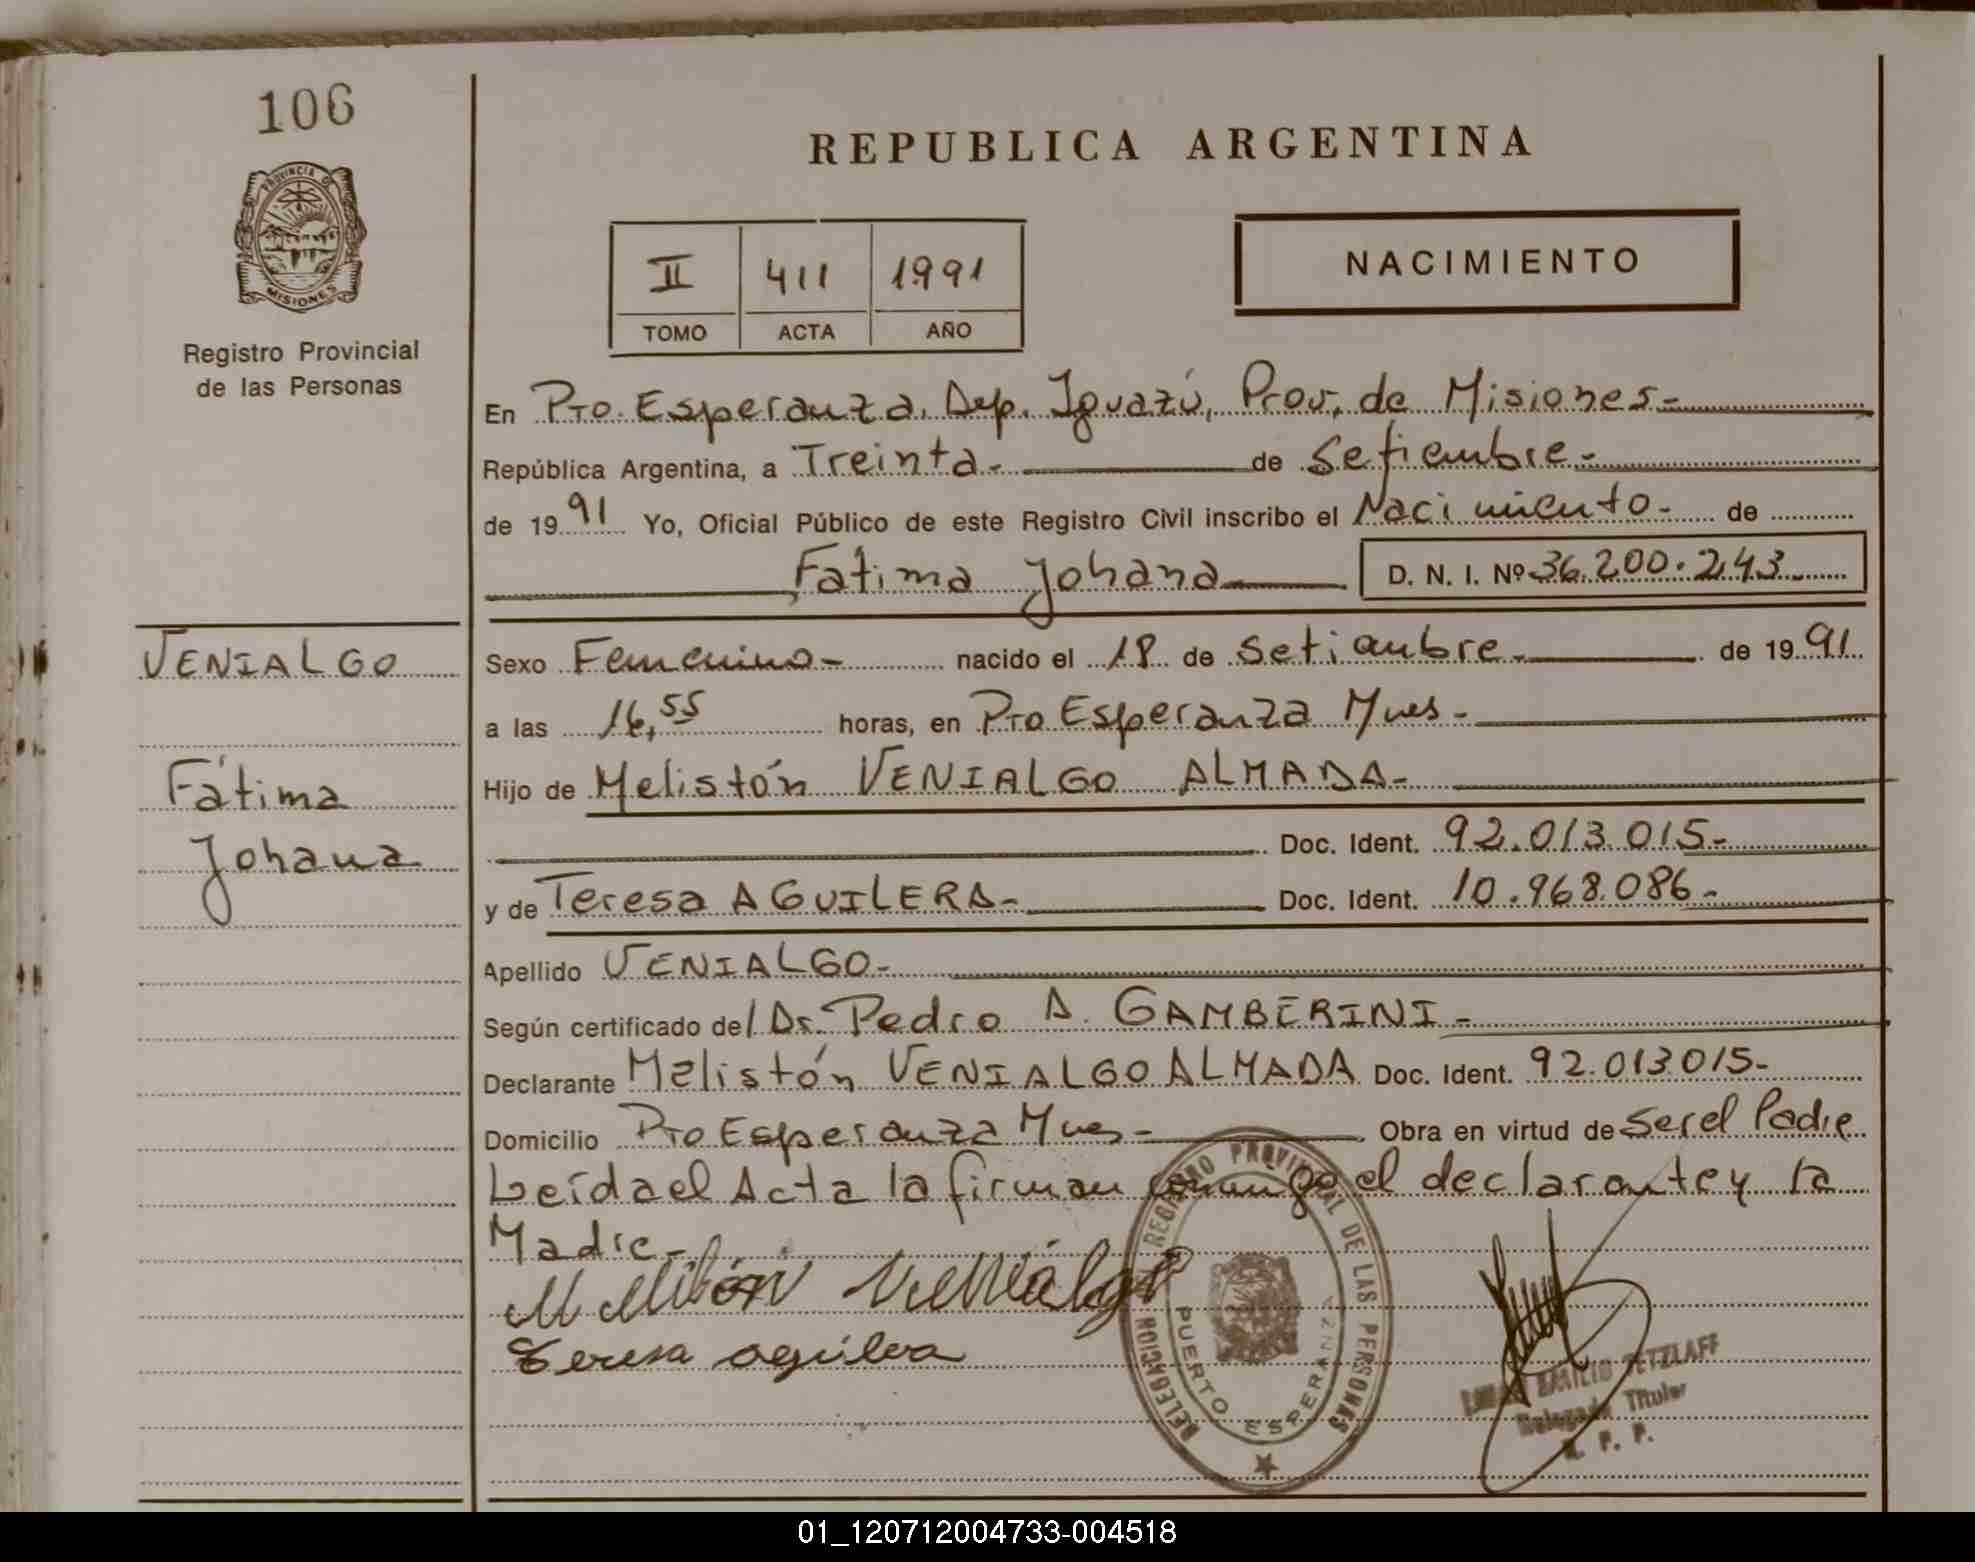 106
PROVINCIA DE
MISIONES
Registro Provincial
de las Personas
VENIALGO
Fátima
Johana
REPUBLICA ARGENTINA
II 411 1991
TOMO ACTA AÑO
NACIMIENTO
En Pto. Esperanza, Dep. Iguazú, Prov. de Misiones-
República Argentina, a Treinta- de Setiembre-
de 1991 Yo, Oficial Público de este Registro Civil inscribo el Nacimiento- de
Fátima Johana D. N. I. Nº 36.200.243
Sexo Femenino- nacido el 18 de Setiembre- de 1991
a las 16,55 horas, en Pto Esperanza Mnes-
Hijo de Melistón VENIALGO ALMADA-
Doc. Ident. 92.013.015-
y de Teresa AGUILERA- Doc. Ident. 10.968.086-
Apellido VENIALGO-
Según certificado del Dr. Pedro A. GAMBERINI-
Declarante Melistón VENIALGO ALMADA Doc. Ident. 92.013015-
Domicilio Pto Esperanza Mnes- Obra en virtud de Ser el Padre
Leída el Acta la firman conmigo el declarante y la
Madre-
Melitón Venialgo
Teresa aguilera
DELEGACION REGISTRO PROVINCIAL DE LAS PERSONAS
PUERTO ESPERANZA
EMILIO TETZLAFF
Delegado Titular
R. P. P.
01_120712004733-004518